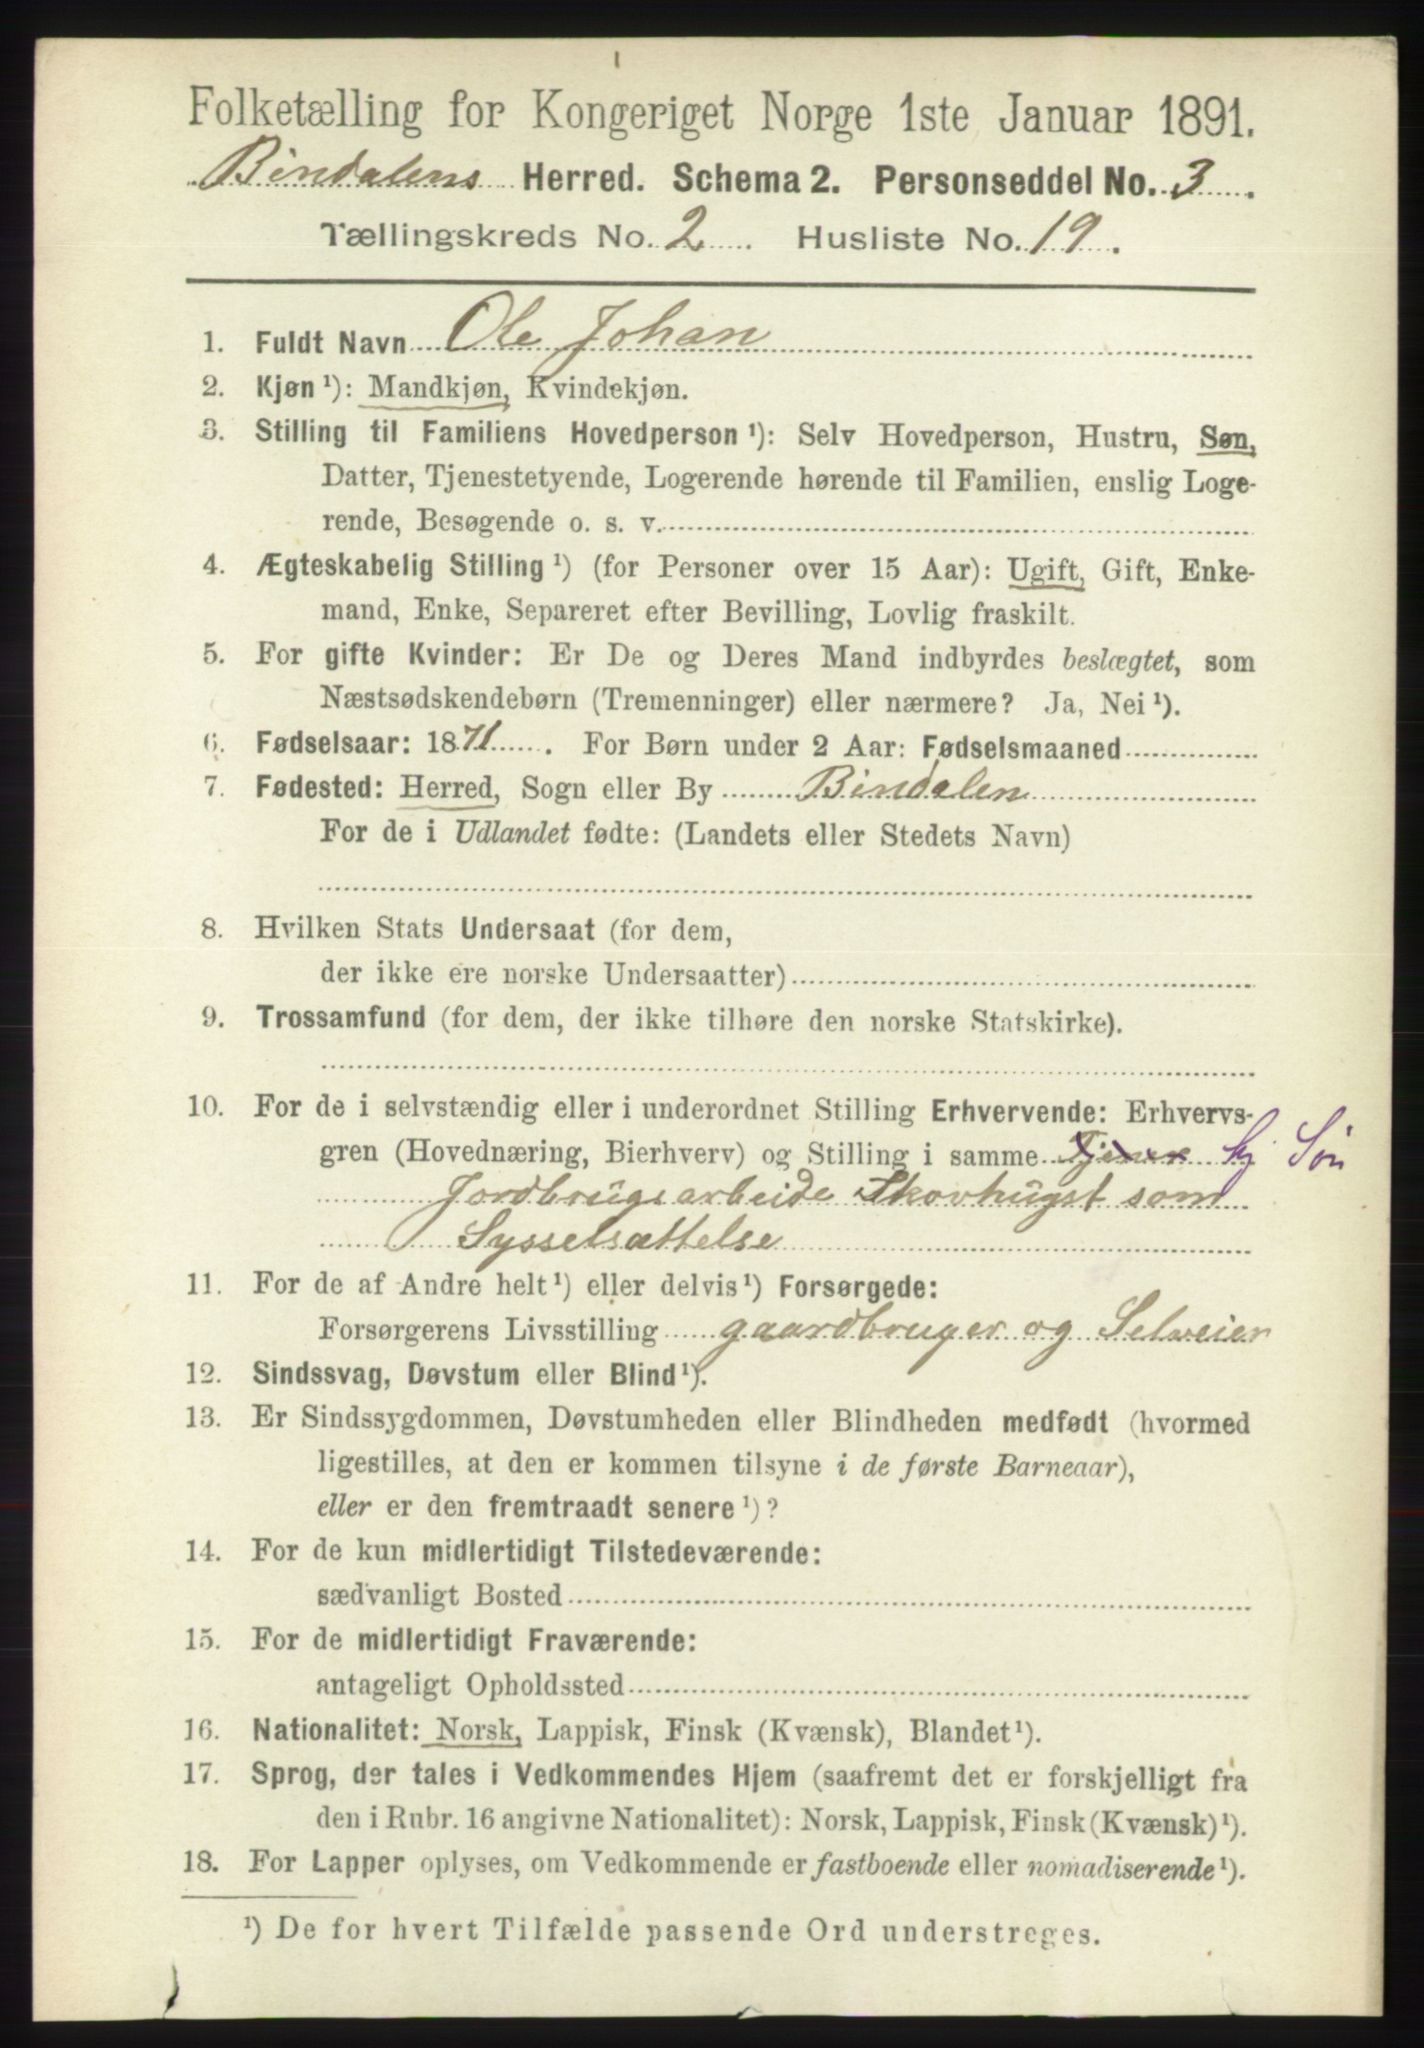 Folketælling for Kongeriget Norge 1ste Januar 1891.
Bindalens Herred. Schema 2. Personseddel No. 3.
Tællingskreds No. 2. Husliste No. 19.
1. Fuldt Navn Ole Johan
2. Kjøn ¹): Mandkjøn, Kvindekjøn.
3. Stilling til Familiens Hovedperson ¹): Selv Hovedperson, Hustru, Søn,
Datter, Tjenestetyende, Logerende hørende til Familien, enslig Loge-
rende, Besøgende o. s. v.
4. Ægteskabelig Stilling ¹) (for Personer over 15 Aar): Ugift, Gift, Enke-
mand, Enke, Separeret efter Bevilling, Lovlig fraskilt.
5. For gifte Kvinder: Er De og Deres Mand indbyrdes beslægtet, som
Næstsødskendebørn (Tremenninger) eller nærmere? Ja, Nei ¹).
6. Fødselsaar: 1871. For Børn under 2 Aar: Fødselsmaaned
7. Fødested: Herred, Sogn eller By Bindalen
For de i Udlandet fødte: (Landets eller Stedets Navn)
8. Hvilken Stats Undersaat (for dem,
der ikke ere norske Undersaatter)
9. Trossamfund (for dem, der ikke tilhøre den norske Statskirke).
10. For de i selvstændig eller i underordnet Stilling Erhvervende: Erhvervs-
gren (Hovednæring, Bierhverv) og Stilling i samme Tjener Sj Søn
Jordbrugsarbeide Skovhugst som
Sysselsættelse
11. For de af Andre helt ¹) eller delvis ¹) Forsørgede:
Forsørgerens Livsstilling gaardbruger og Selveier
12. Sindssvag, Døvstum eller Blind ¹).
13. Er Sindssygdommen, Døvstumheden eller Blindheden medfødt (hvormed
ligestilles, at den er kommen tilsyne i de første Barneaar),
eller er den fremtraadt senere ¹)?
14. For de kun midlertidigt Tilstedeværende:
sædvanligt Bosted
15. For de midlertidigt Fraværende:
antageligt Opholdssted
16. Nationalitet: Norsk, Lappisk, Finsk (Kvænsk), Blandet ¹).
17. Sprog, der tales i Vedkommendes Hjem (saafremt det er forskjelligt fra
den i Rubr. 16 angivne Nationalitet): Norsk, Lappisk, Finsk (Kvænsk) ¹).
18. For Lapper oplyses, om Vedkommende er fastboende eller nomadiserende ¹).
¹) De for hvert Tilfælde passende Ord understreges.